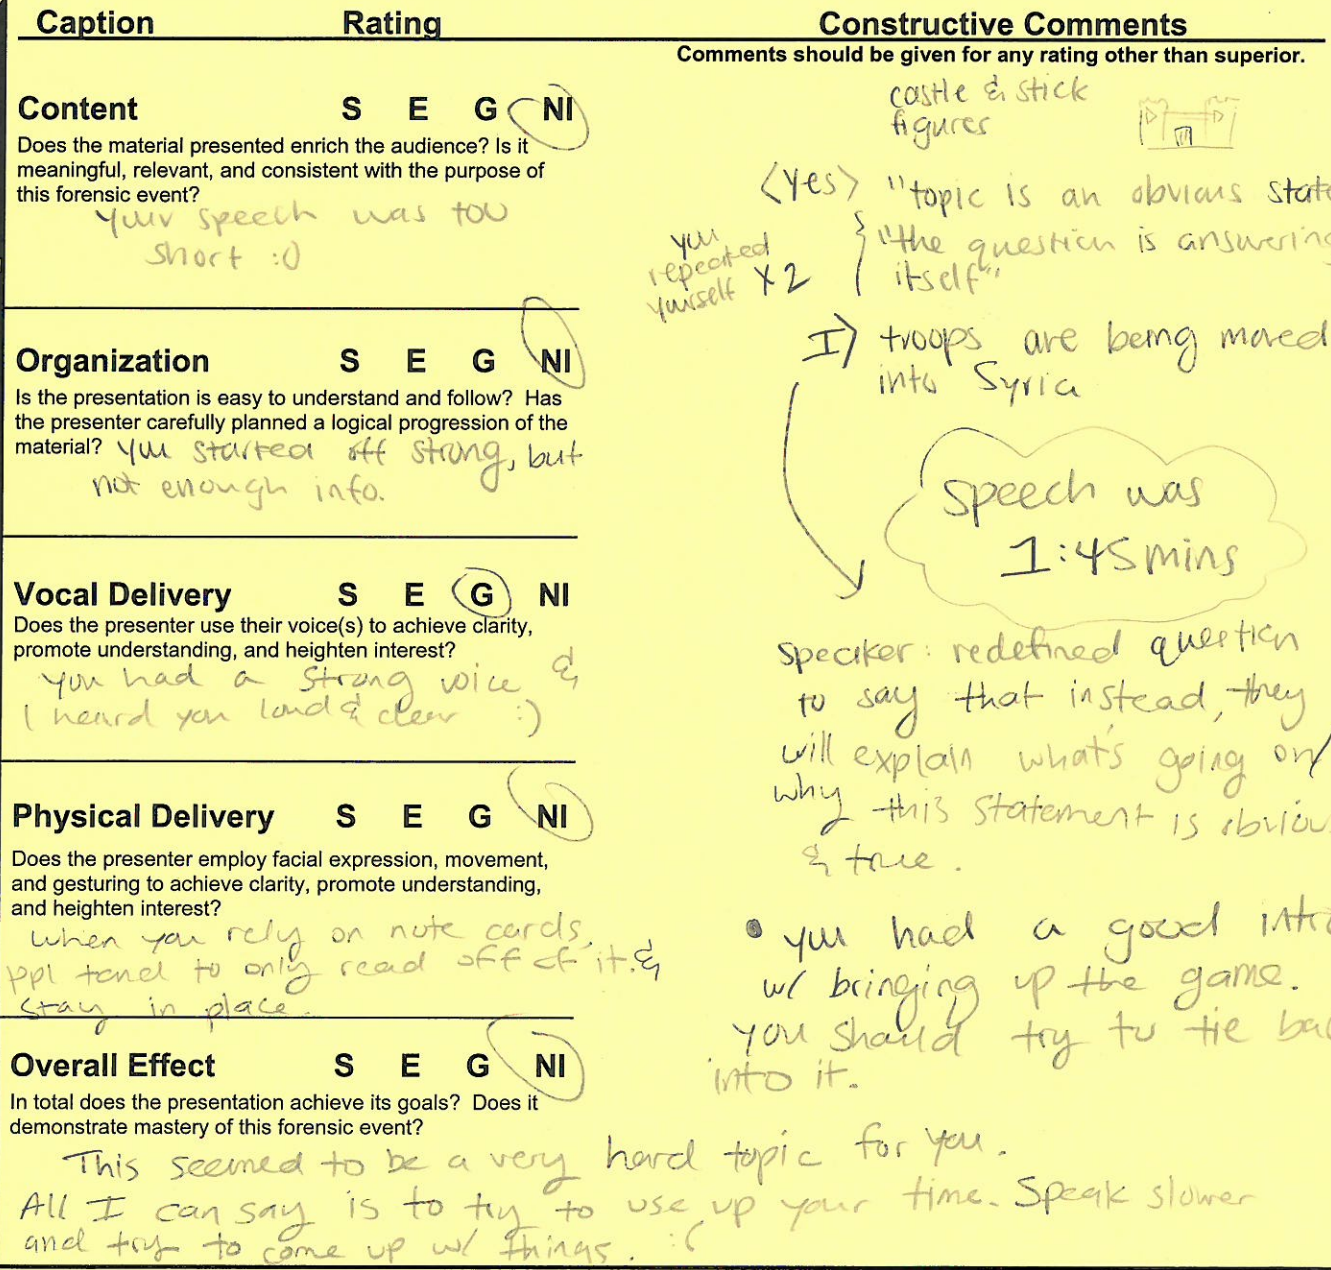 Caption Rating Constructive Comments
Comments should be given for any rating other than superior.
Content S E G NI
Does the material presented enrich the audience? Is it
meaningful, relevant, and consistent with the purpose of
this forensic event?
your speech was too
short :()
Organization S E G NI
Is the presentation is easy to understand and follow? Has
the presenter carefully planned a logical progression of the
material? you started off strong, but
not enough info.
Vocal Delivery S E G NI
Does the presenter use their voice(s) to achieve clarity,
promote understanding, and heighten interest?
you had a strong voice &
I heard you loud & clear :)
Physical Delivery S E G NI
Does the presenter employ facial expression, movement,
and gesturing to achieve clarity, promote understanding,
and heighten interest?
when you rely on note cards,
ppl tend to only read off of it. &
stay in place.
Overall Effect S E G NI
In total does the presentation achieve its goals? Does it
demonstrate mastery of this forensic event?
This seemed to be a very hard topic for you.
All I can say is to try to use up your time. Speak slower
and try to come up w/ things. :(
castle & stick
figures
<yes> "topic is an obvious state
you
repeated
yourself x2
"the question is answering
itself"
I) troops are being moved
into Syria
speech was
1:45 mins
speaker: redefined question
to say that instead, they
will explain what's going on/
why this statement is obviou
& true.
• you had a good intro
w/ bringing up the game.
you should try to tie bac
into it.